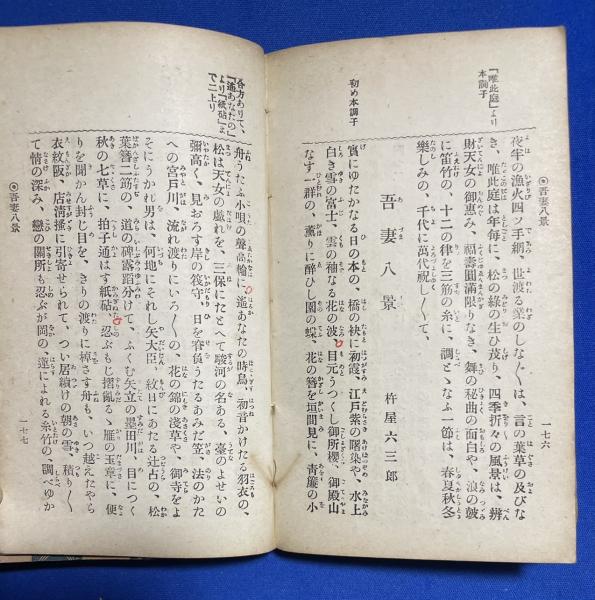 「唯此庭」より
本調子
夜半の漁火四ツ手網、世渡る業のしな〴〵は、言の葉草も及びな
き、唯此庭は年毎に、松の綠の生ひ茂り、四季折々の風景は、辨
財天女の御惠み、福壽圓滿限りなき、舞の秘曲の面白や、浪の皷
に笛竹の、十二の律を三筋の糸に、調とゝなふ一節は、春夏秋冬
樂しみの、千代に萬代祝し〳〵て、
吾妻八景
杵屋六三郎
初め本調子
實にゆたかなる日の本の、橋の袂に初霞、江戸紫の曙染や、水上
白き雪の富士、雲の袖なる花の波、目元うつくし御所櫻、御殿山
なす一群の、薫りに醉ひし園の蝶、花の簪を垣間見に、靑簾の小
◉吾妻八景
一七六
合方ありて、
「遙あなたの」
より「紙砧」ま
で二上り
舟、うたふ小唄の聲高輪に、遙あなたの時鳥、初音かけたる羽衣の、
松は天女の戯れを、三保にたとへて駿河の名ある、臺のよせいの
彌高く、見おろす岸の筏守、日を脊負うたるあみだ笠、法のかた
への宮戸川、流れ渡りにいろ〳〵の、花の錦の淺草や、御寺をよ
そにうかれ男は、何地にそれし矢大臣、紋日にあたる辻占の、松
葉簪二筋の、道の碑露踏分けて、ふくむ矢立の墨田川、目につく
秋の七草に、拍子通はす紙砧、忍ぶもじ摺亂るゝ雁の玉章に、便
りを聞かん封じ目を、きりの渡りに棹さす舟も、いつ越えたやら
衣紋阪、店淸搔に引寄せられて、つい居續けの朝の雪、積り〳〵
て情の深み、戀の關所も忍ぶが岡の、蓮によれる糸竹の、調べゆか
◉吾妻八景
一七七